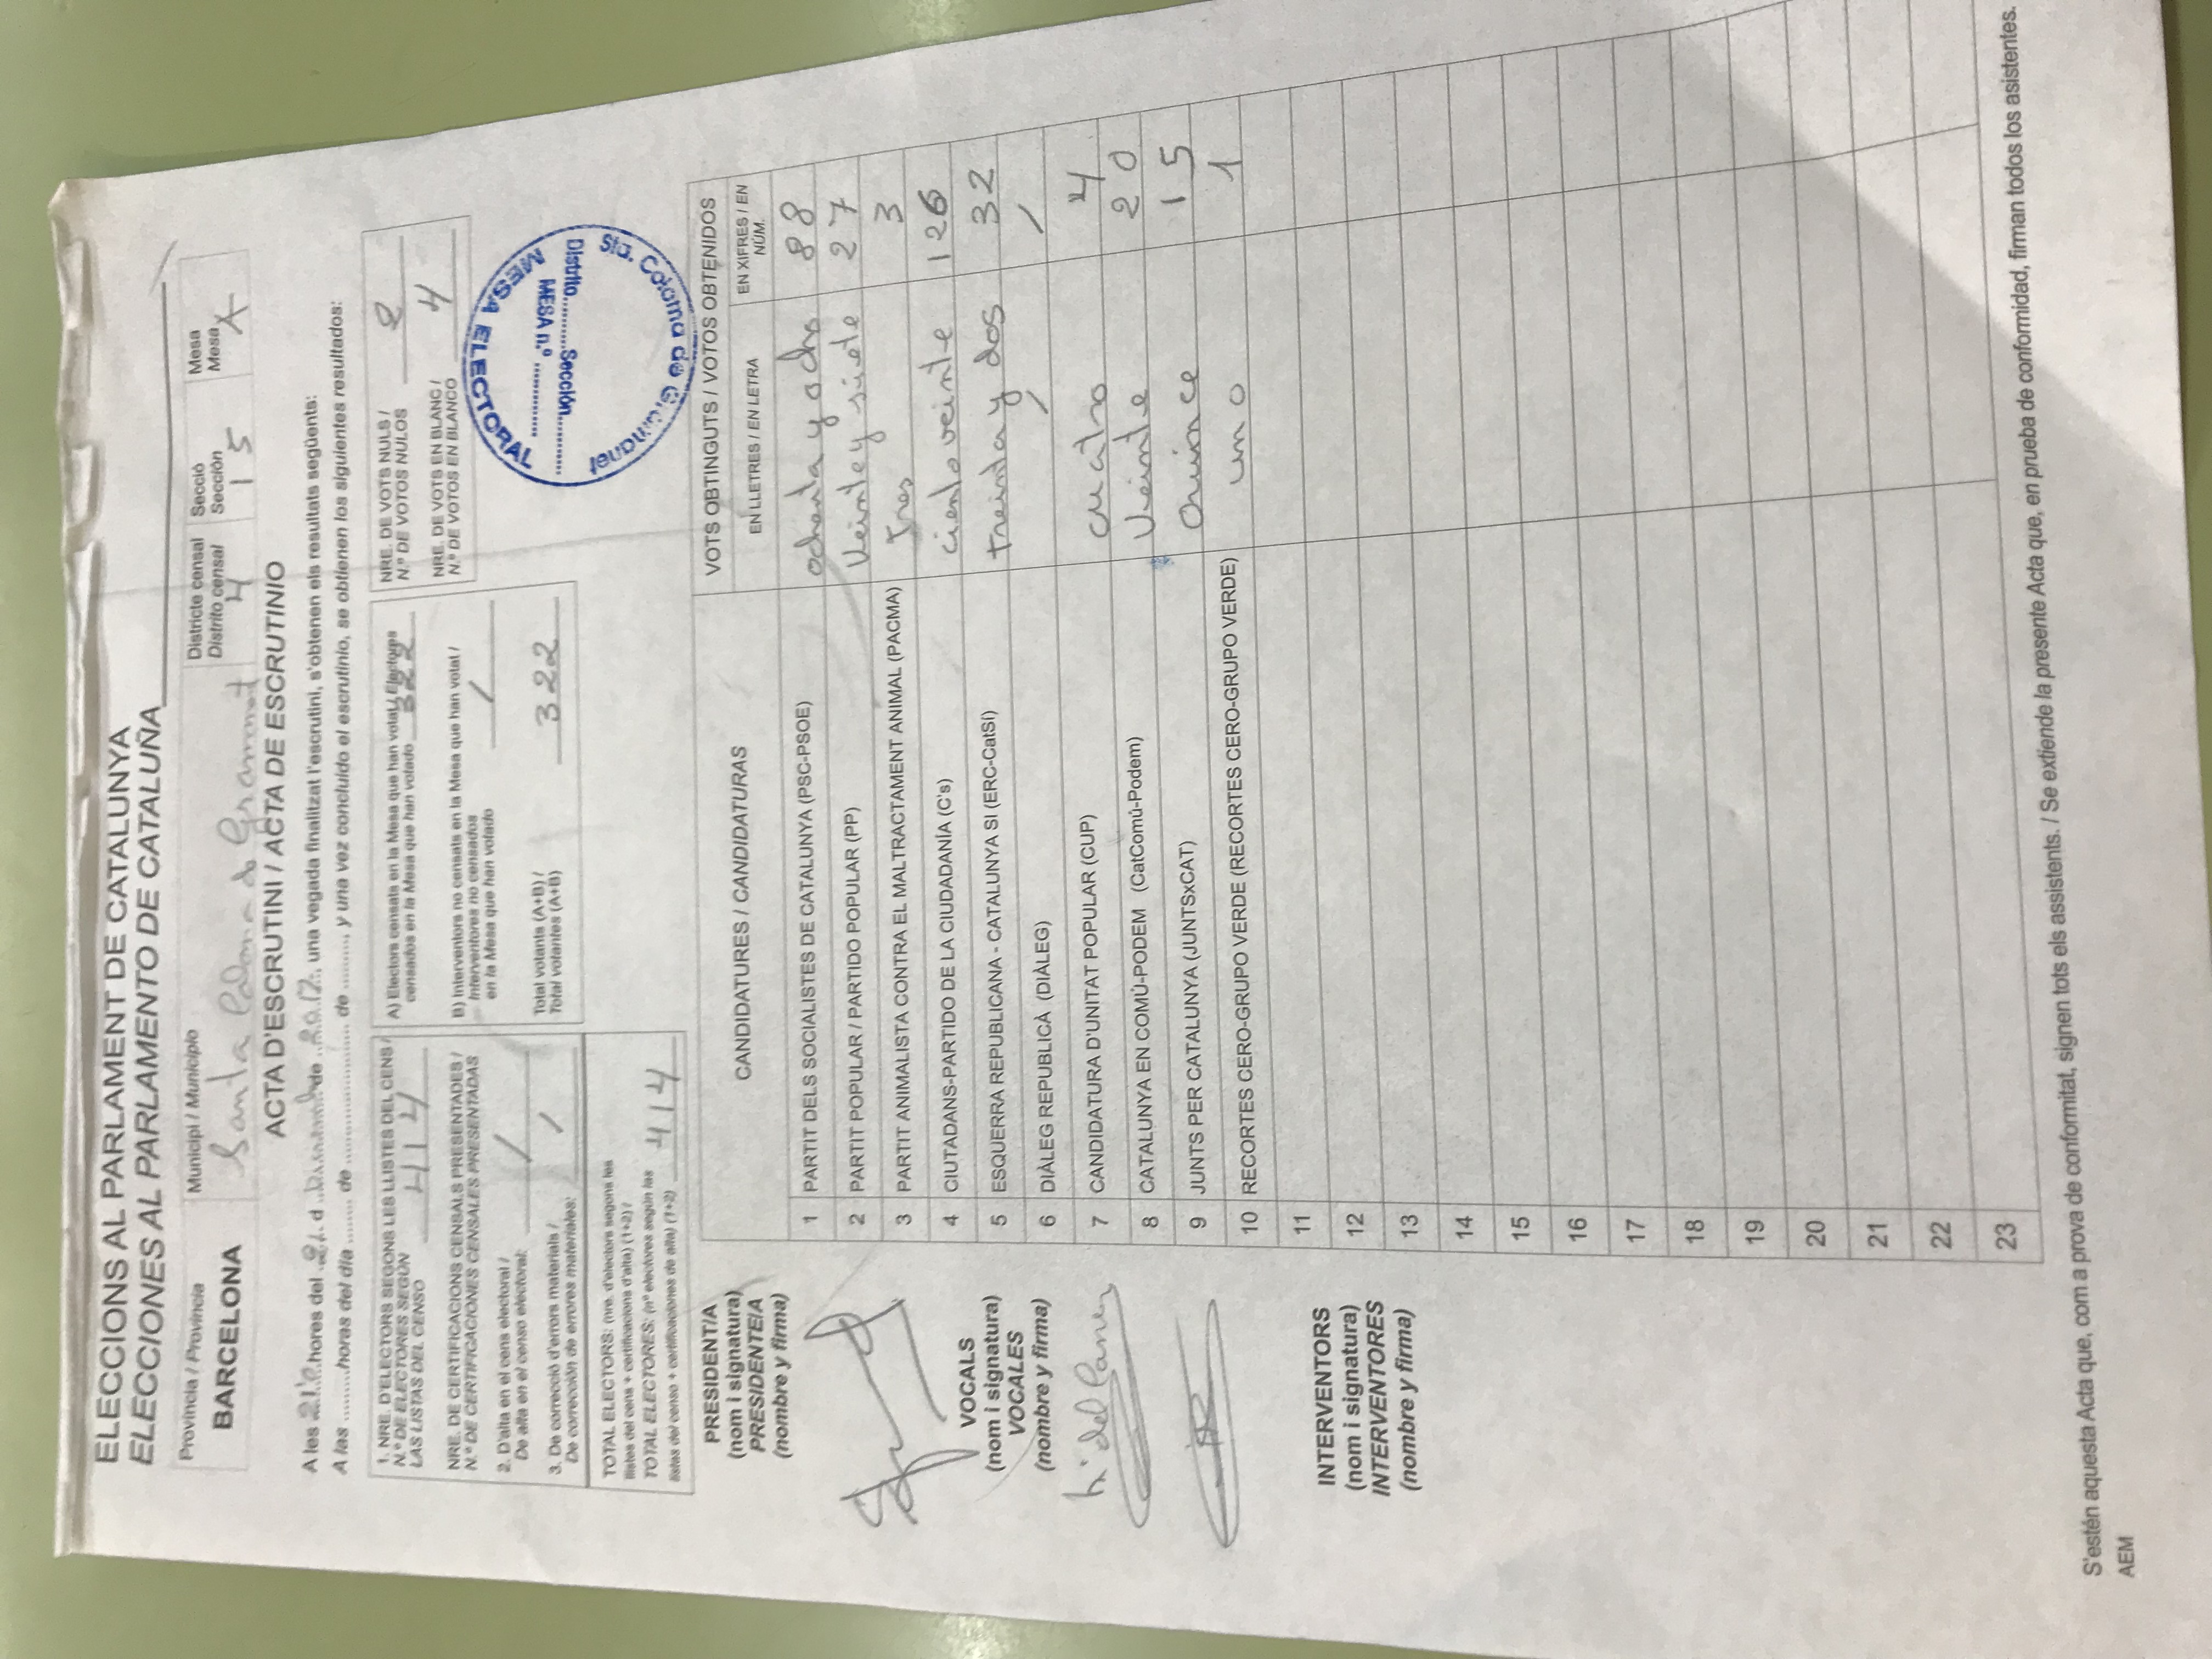 ELECCIONS AL PARLAMENT DE CATALUNYA
ELECCIONES AL PARLAMENTO DE CATALUÑA
Província / Provincia
BARCELONA
Municipi / Municipio
Santa Coloma de Gramanet
Districte censal
Distrito censal
4
Secció
Sección
15
Mesa
Mesa
A
ACTA D'ESCRUTINI / ACTA DE ESCRUTINIO
A les 21'0 hores del 21 d de 2017, una vegada finalitzat l'escrutini, s'obtenen els resultats següents:
A las .........horas del día ........ de ........................ de ........., y una vez concluido el escrutinio, se obtienen los siguientes resultados:
1. NRE. D'ELECTORS SEGONS LES LLISTES DEL CENS /
N.º DE ELECTORES SEGÚN
LAS LISTAS DEL CENSO 414
NRE. DE CERTIFICACIONS CENSALS PRESENTADES /
N.º DE CERTIFICACIONES CENSALES PRESENTADAS
2. D'alta en el cens electoral /
De alta en el censo electoral: /
3. De correcció d'errors materials /
De corrección de errores materiales: /
TOTAL ELECTORS: (nre. d'electors segons les
llistes del cens + certificacions d'alta) (1+2) /
TOTAL ELECTORES: (nº electores según las
listas del censo + certificaciones de alta) (1+2) 414
A) Electors censats en la Mesa que han votat / Electores
censados en la Mesa que han votado 322
B) Interventors no censats en la Mesa que han votat /
Interventores no censados
en la Mesa que han votado /
Total votants (A+B) /
Total votantes (A+B) 322
NRE. DE VOTS NULS /
N.º DE VOTOS NULOS 2
NRE. DE VOTS EN BLANC /
N.º DE VOTOS EN BLANCO 4
MESA ELECTORAL
MESA n.º ..............
Distrito..........Sección..........
Sta. Coloma de Gramanet
PRESIDENT/A
(nom i signatura)
PRESIDENTE/A
(nombre y firma)
VOCALS
(nom i signatura)
VOCALES
(nombre y firma)
INTERVENTORS
(nom i signatura)
INTERVENTORES
(nombre y firma)
CANDIDATURES / CANDIDATURAS
VOTS OBTINGUTS / VOTOS OBTENIDOS
EN LLETRES / EN LETRA
EN XIFRES / EN
NÚM.
1 PARTIT DELS SOCIALISTES DE CATALUNYA (PSC-PSOE) ochenta y ocho 88
2 PARTIT POPULAR / PARTIDO POPULAR (PP) Veinte y siete 27
3 PARTIT ANIMALISTA CONTRA EL MALTRACTAMENT ANIMAL (PACMA) Tres 3
4 CIUTADANS-PARTIDO DE LA CIUDADANÍA (C's) ciento veinte 126
5 ESQUERRA REPUBLICANA - CATALUNYA SI (ERC-CatSí) treinta y dos 32
6 DIÀLEG REPUBLICÀ (DIÀLEG) / /
7 CANDIDATURA D'UNITAT POPULAR (CUP) cuatro 4
8 CATALUNYA EN COMÚ-PODEM (CatComú-Podem) Veinte 20
9 JUNTS PER CATALUNYA (JUNTSxCAT) Quince 15
10 RECORTES CERO-GRUPO VERDE (RECORTES CERO-GRUPO VERDE) uno 1
11
12
13
14
15
16
17
18
19
20
21
22
23
S'estén aquesta Acta que, com a prova de conformitat, signen tots els assistents. / Se extiende la presente Acta que, en prueba de conformidad, firman todos los asistentes.
AEM